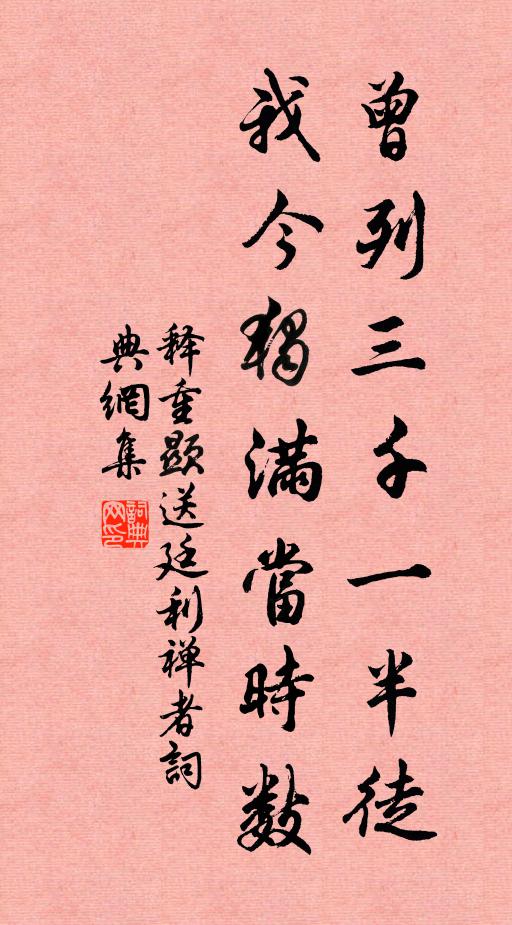 曾列三千一半徒
我今獨滿當時數
释重顯送廷利禅者詞
典網集
詞典網印